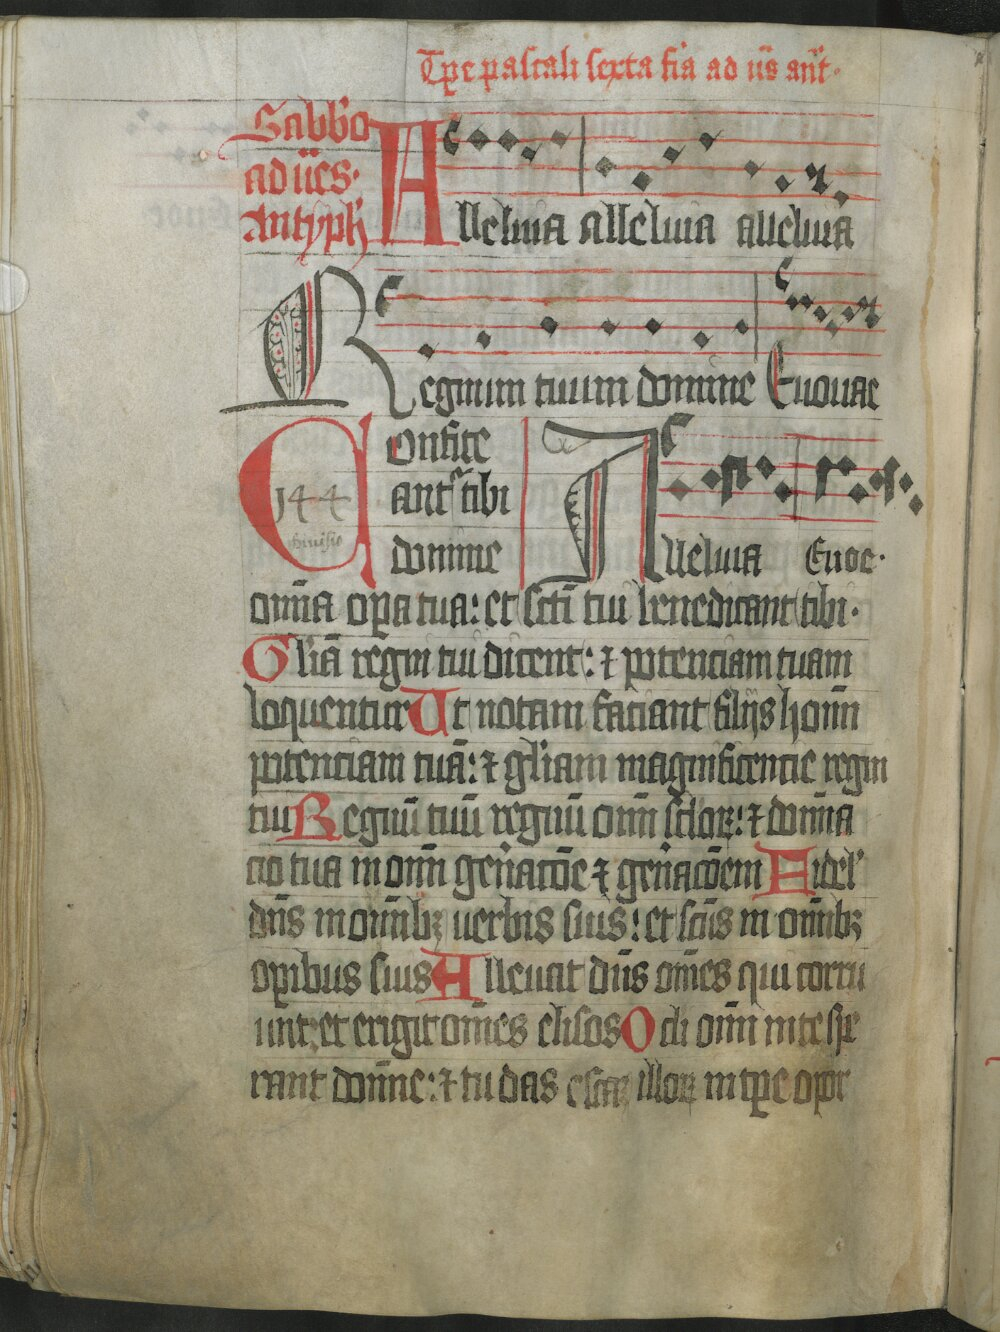 Tp̄e pascali sexta fīa ad ūs an̄t.
Sabb'o
ad ūcs.
Antyph
Alleluia alleluia alleluia
Regnum tuum domine Euouae
Confite
ant̄ tibi
domine
Alleluia Euoe.
144
diuisio
om̄ia oꝑa tua: et sc̄ti tui benedicant tibi.
Gl'iā regni tui dicent: ⁊ potenciam tuam
loquentur Ut notam faciant filijs hom̄
potenciam tuā: ⁊ gl'iam magnificencie regni
tui Regnū tuū regnū om̄ sc̄loꝝ: ⁊ domina
cio tua in om̄i gen̄acōe ⁊ gen̄acōem Fidel'
dn̄s in om̄ibꝫ uerbis suis: et sc̄us in om̄ibꝫ
oꝑibus suis Alleuat dn̄s om̄es qui corru
unt: et erigit om̄es elisos Oc̄li om̄ in te spe
rant domn̄e: ⁊ tu das escaꝫ illoꝝ in tp̄e opor